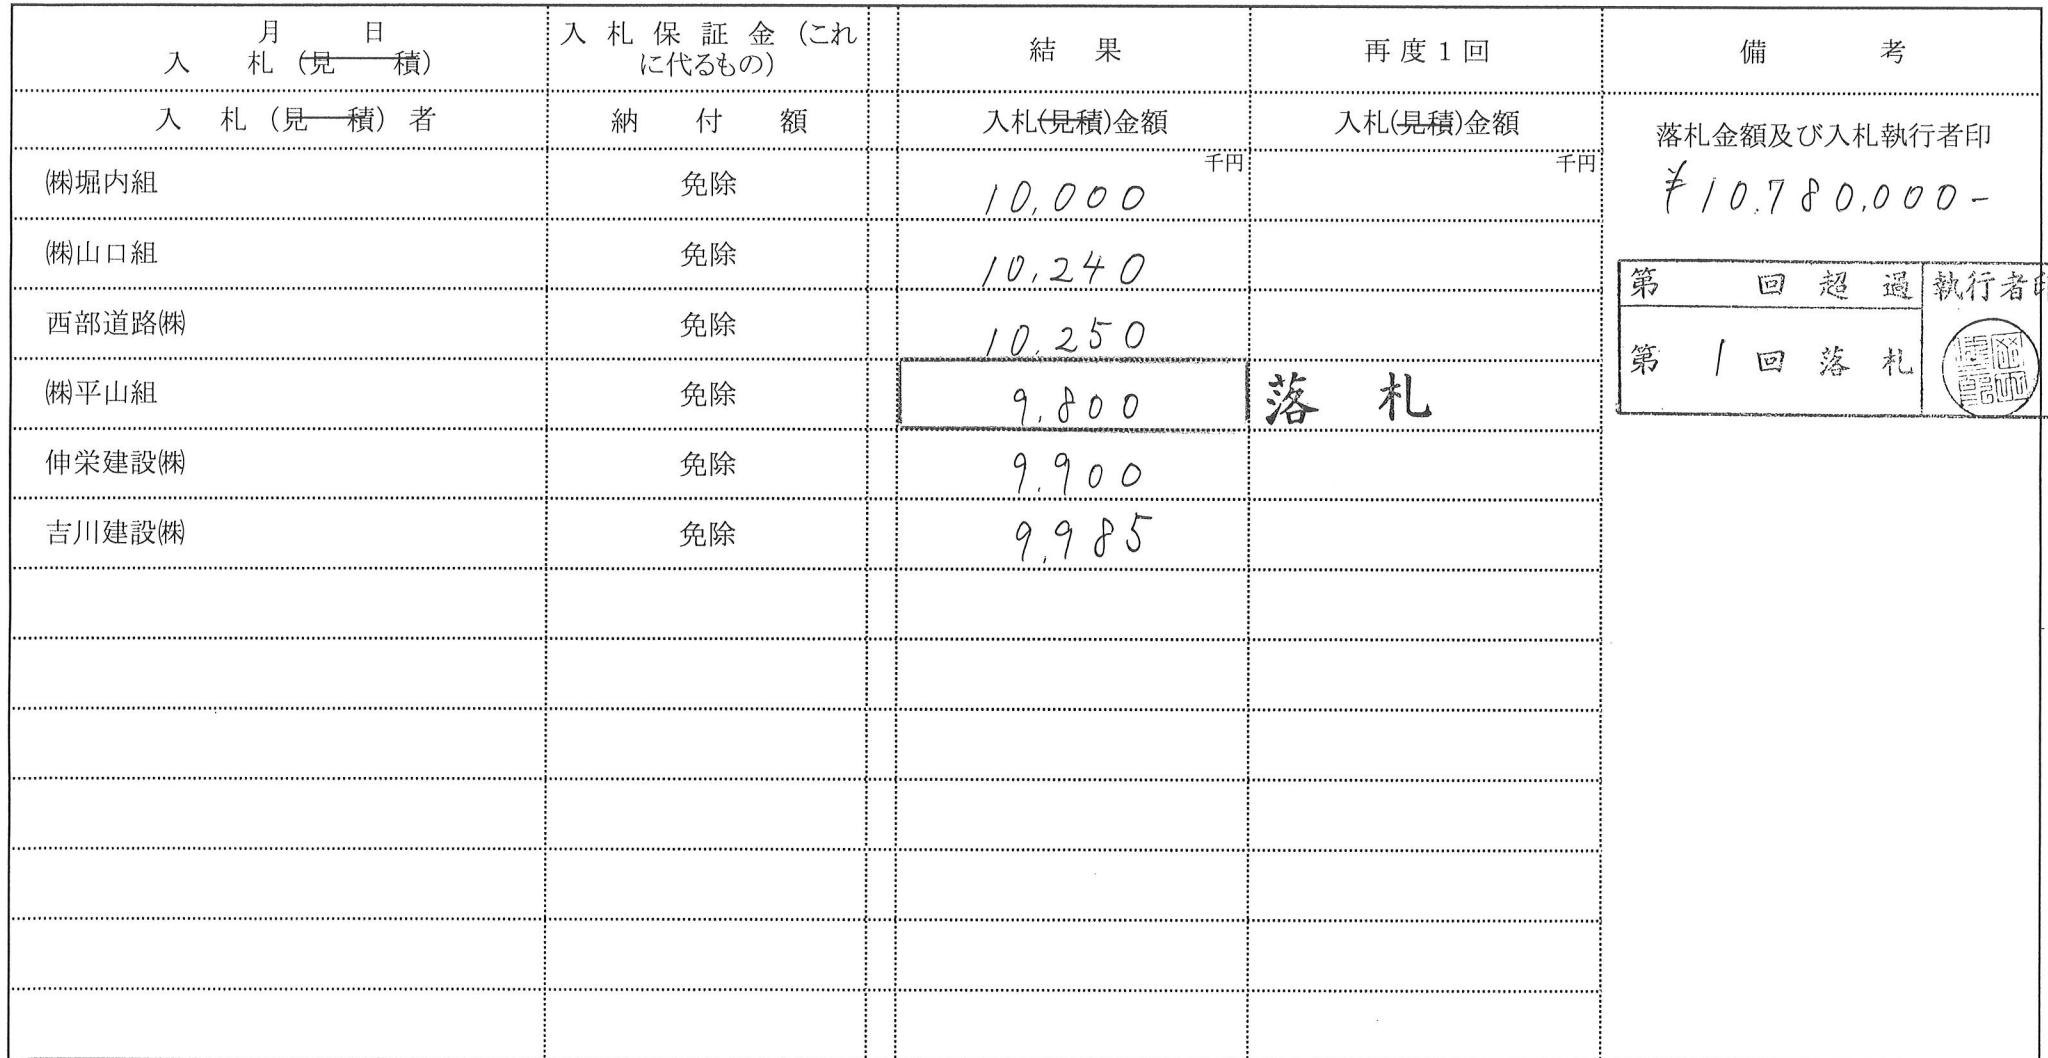 月 日
入 札 (見 積)
入 札 保 証 金 (これ
に代るもの)
結 果
再 度 1 回
備 考
入 札 (見 積) 者
納 付 額
入札(見積)金額
入札(見積)金額
落札金額及び入札執行者印
千円
千円
㈱堀内組 免除 10,000
¥10,780,000-
㈱山口組 免除 10,240
第 回 超 過 執行者印
西部道路㈱ 免除 10,250
第 1 回 落 札
㈱平山組 免除 9,800 落 札
伸栄建設㈱ 免除 9,900
吉川建設㈱ 免除 9,985